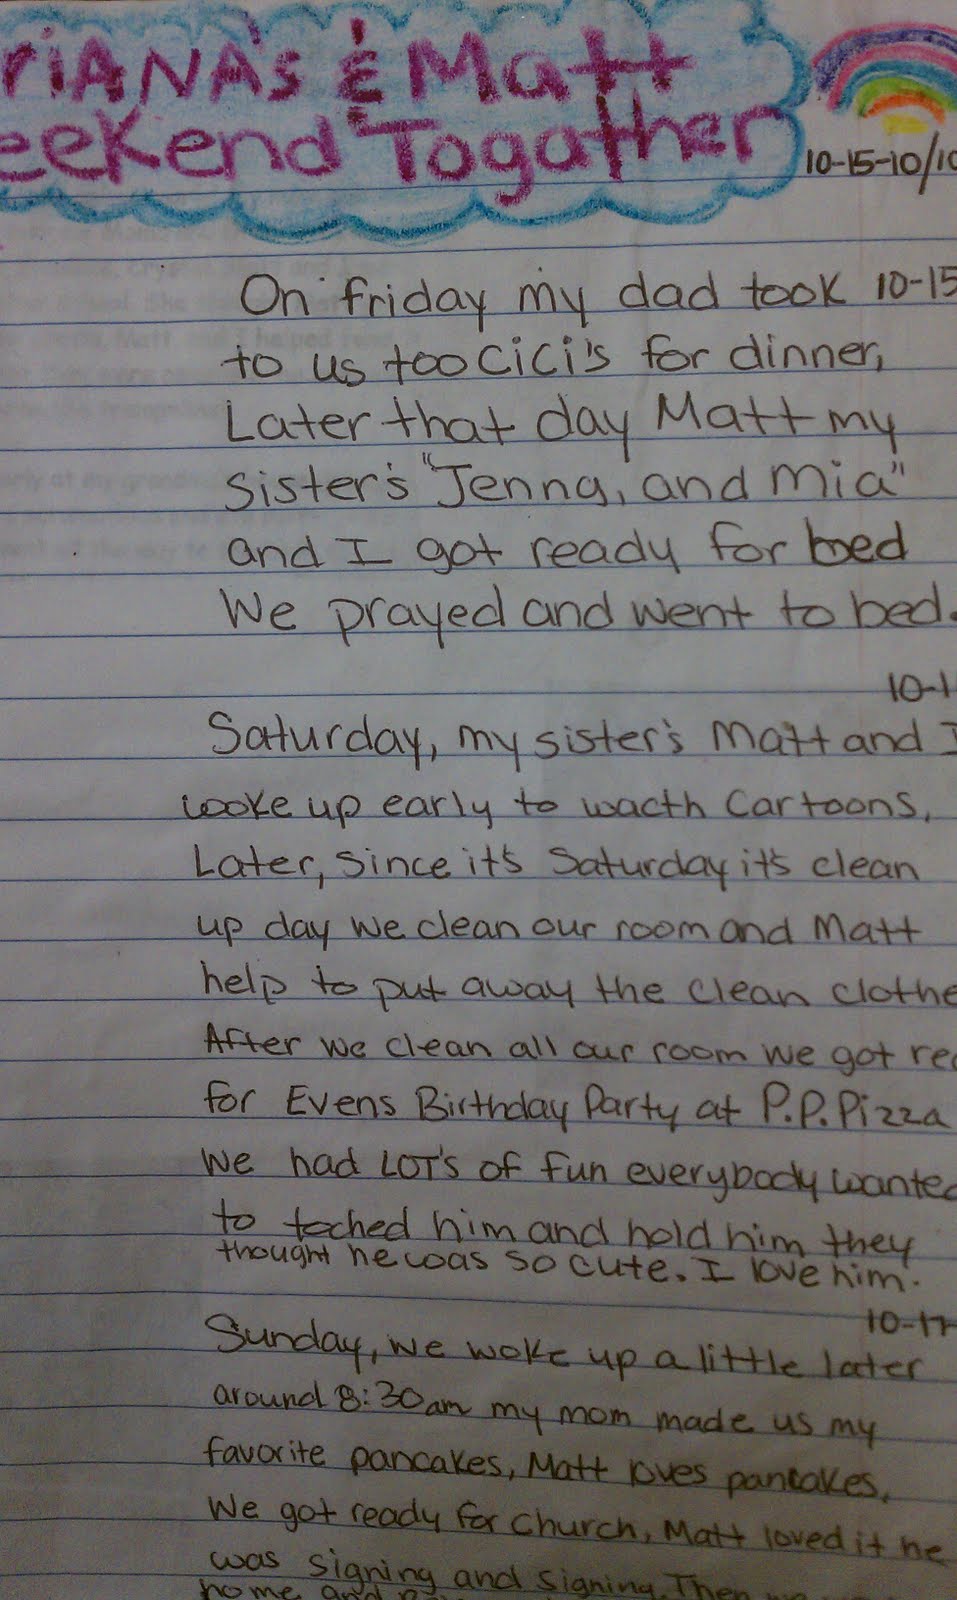 RiANA's & Matt
eekend Togather
10-15-10/10
On friday my dad took 10-15
to us too CiCi's for dinner,
Later that day Matt my
sister's "Jenna, and Mia"
and I got ready for bed
We prayed and went to bed.
10-1
Saturday, my sister's Matt and I
wooke up early to wacth Cartoons,
Later, since it's Saturday it's clean
up day we clean our room and Matt
help to put away the clean clothe
After we clean all our room we got rea
for Evens Birthday Party at P.P.Pizza
We had LOT's of fun everybody wanted
to toched him and hold him they
thought he was so cute. I love him.
10-17
Sunday, we woke up a little later
around 8:30am my mom made us my
favorite pancakes, Matt loves pancakes,
We got ready for church, Matt loved it he
was signing and signing. Then we
home and